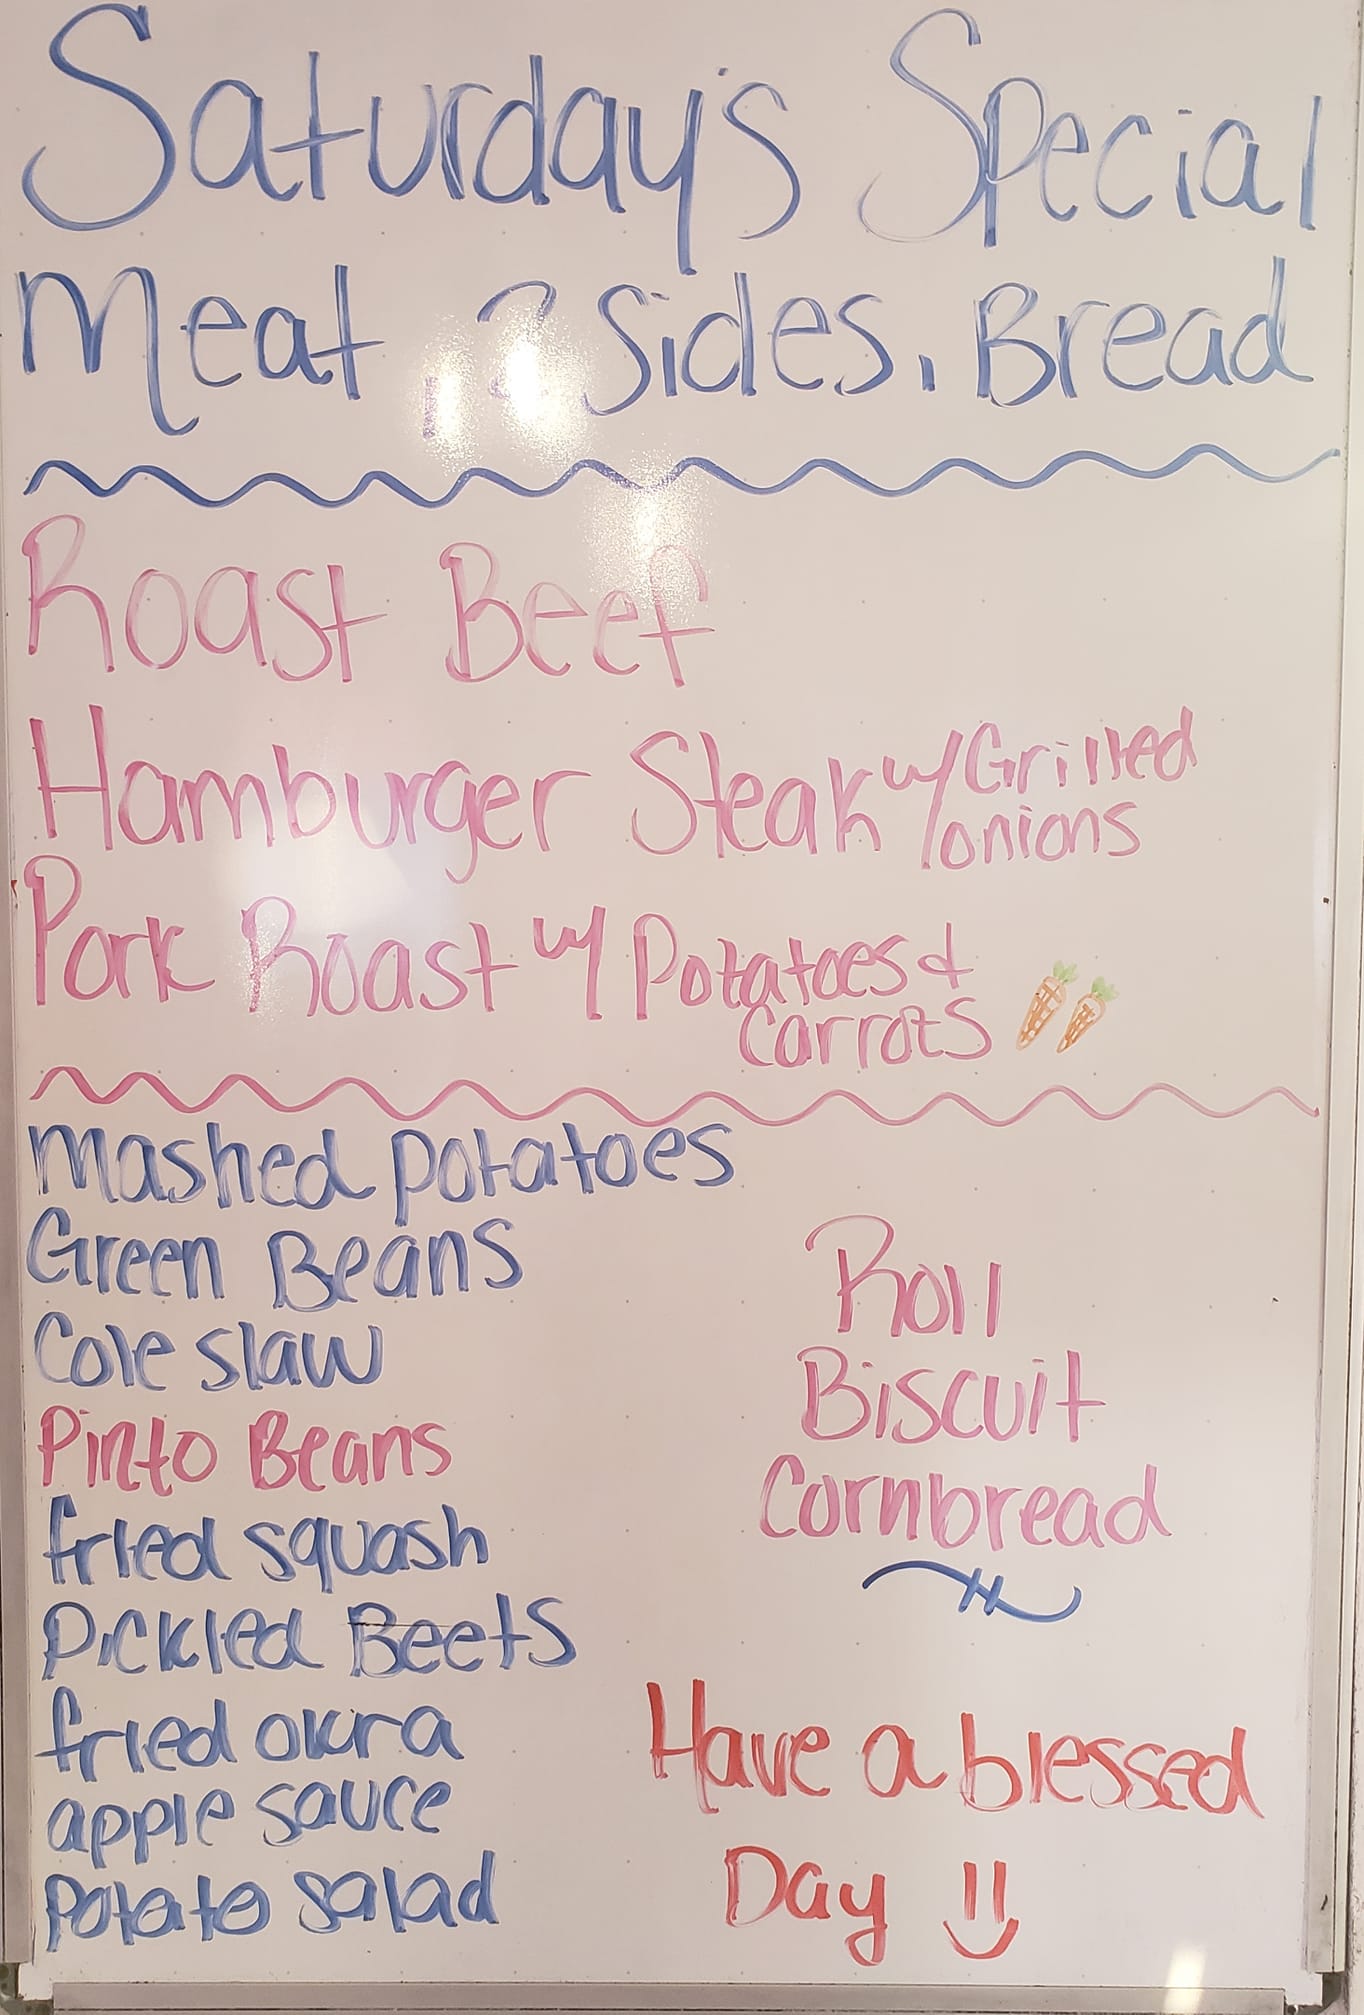 Saturday's Special
Meat, 2 Sides, Bread
Roast Beef
Hamburger Steak w/ Grilled
onions
Pork Roast w/ Potatoes &
Carrots
Mashed potatoes
Green Beans
Cole slaw
Pinto Beans
fried squash
Pickled Beets
fried okra
apple sauce
potato salad
Roll
Biscuit
Cornbread
Have a blessed
Day